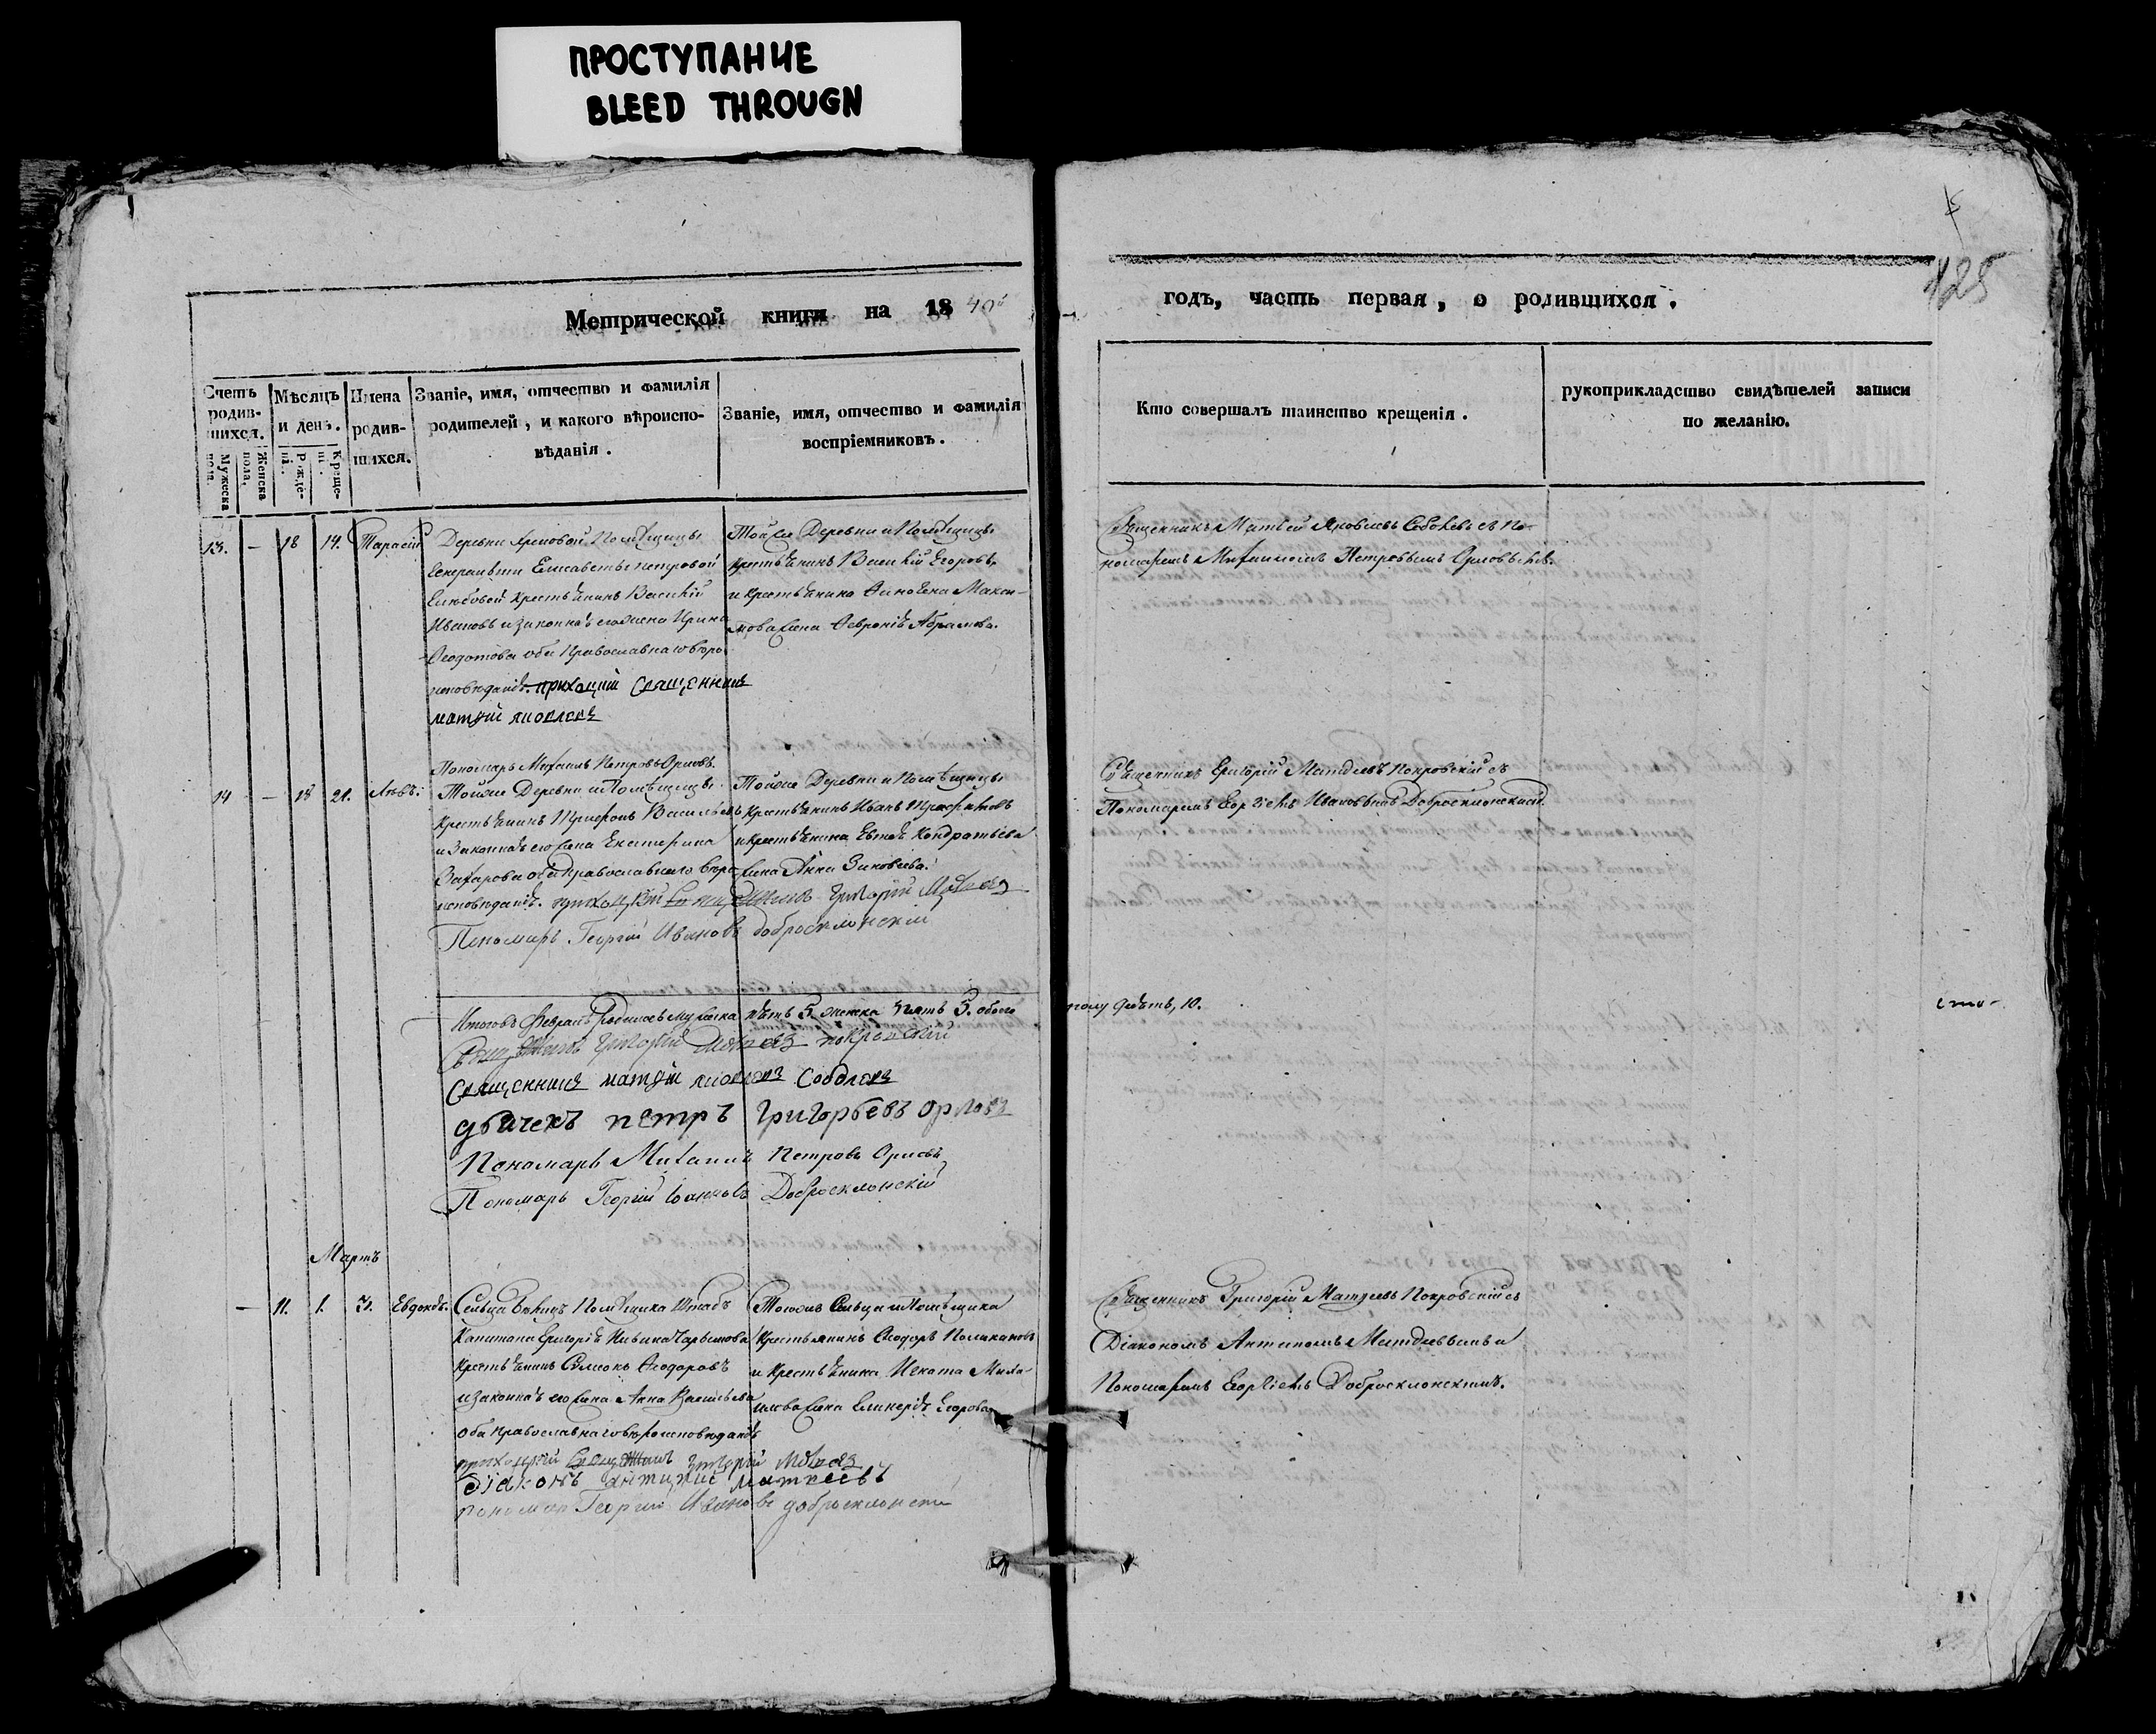 ПРОСТУПАНИЕ
BLEED THROUGH
125
Метрической книги на 1840й
годъ, часть первая, о родившихся.
Счетъ родив-шихся.
Мужеска пола.
Женска пола.
Мѣсяцъ и день.
Рожде-нiя.
Креще-нiя.
Имена родив-шихся.
Званіе, имя, отчество и фамилія
родителей, и какого вѣроиспо-
вѣданія.
Званіе, имя, отчество и фамилія
воспріемниковъ.
Кто совершалъ таинство крещенія.
рукоприкладство свидѣтелей записи
по желанію.
13. — 18 19. Тарасій
Деревни Помѣщицы
Елисаветы Петровой
крестьянинъ Василій
Ивановъ и законная его жена Ирина
Ѳеодотова оба Православнаго вѣро
исповѣданія. приходскій Священникъ
матвѣй яковлевъ
Тойже Деревни и Помѣщицы
крестьянинъ Василій Егоровъ,
и крестьянина Макси-
мова жена Ѳевронія Абрамова.
Священникъ Матвей Яковлевъ Соболевъ съ По-
номаремъ Михаиломъ Петровымъ Орловымъ.
Пономарь Михаилъ Петровъ Орловъ.
14 — 18 21. Левъ.
Тойже Деревни и Помѣщицы
Крестьянинъ Трифонъ Васильевъ
и Законная его жена Екатерина
Захарова оба Православнаго вѣро
исповѣданія. приходскій Священникъ Григорій Матвѣевъ
Пономарь Георгій Ивановъ Доброклонскій
Тойже Деревни и Помѣщицы
Крестьянинъ Иванъ Трифоновъ
и крестьянина Кондратьева
жена Анна Зиновьева.
Священникъ Григорій Матвѣевъ Покровскій съ
Пономаремъ Ивановымъ Доброклонскимъ.
Итого въ Февралѣ Родилось мужеска пять 5 женска пять 5. обоего
полу десять, 10.
Священникъ Григорій Матвѣевъ Покровскій
Священникъ матвѣй яковлевъ Соболевъ
дьячекъ петръ григорьевъ орловъ
Пономарь Михаилъ Петровъ Орловъ
Пономарь Георгій Іоанновъ Доброклонскій
Мартъ
— 11. 1. 3. Евдокія.
Сельца Помѣщика Штабъ
Капитана Григорія
крестьянинъ Симеонъ Ѳеодоровъ
и законная его жена Анна Васильева
оба православнаго вѣроисповѣданія
приходскій Священникъ Григорій Матвѣевъ
діаконъ антипъ матвеевъ
пономарь Георгій Ивановъ доброклонскій
Тогоже Сельца и Помѣщика
Крестьянинъ Ѳеодоръ
и Крестьянина Миха-
илова жена Егорова.
Священникъ Григорій Матвѣевъ Покровскій съ
Діакономъ Антипомъ Матвѣевымъ и
Пономаремъ Доброклонскимъ.